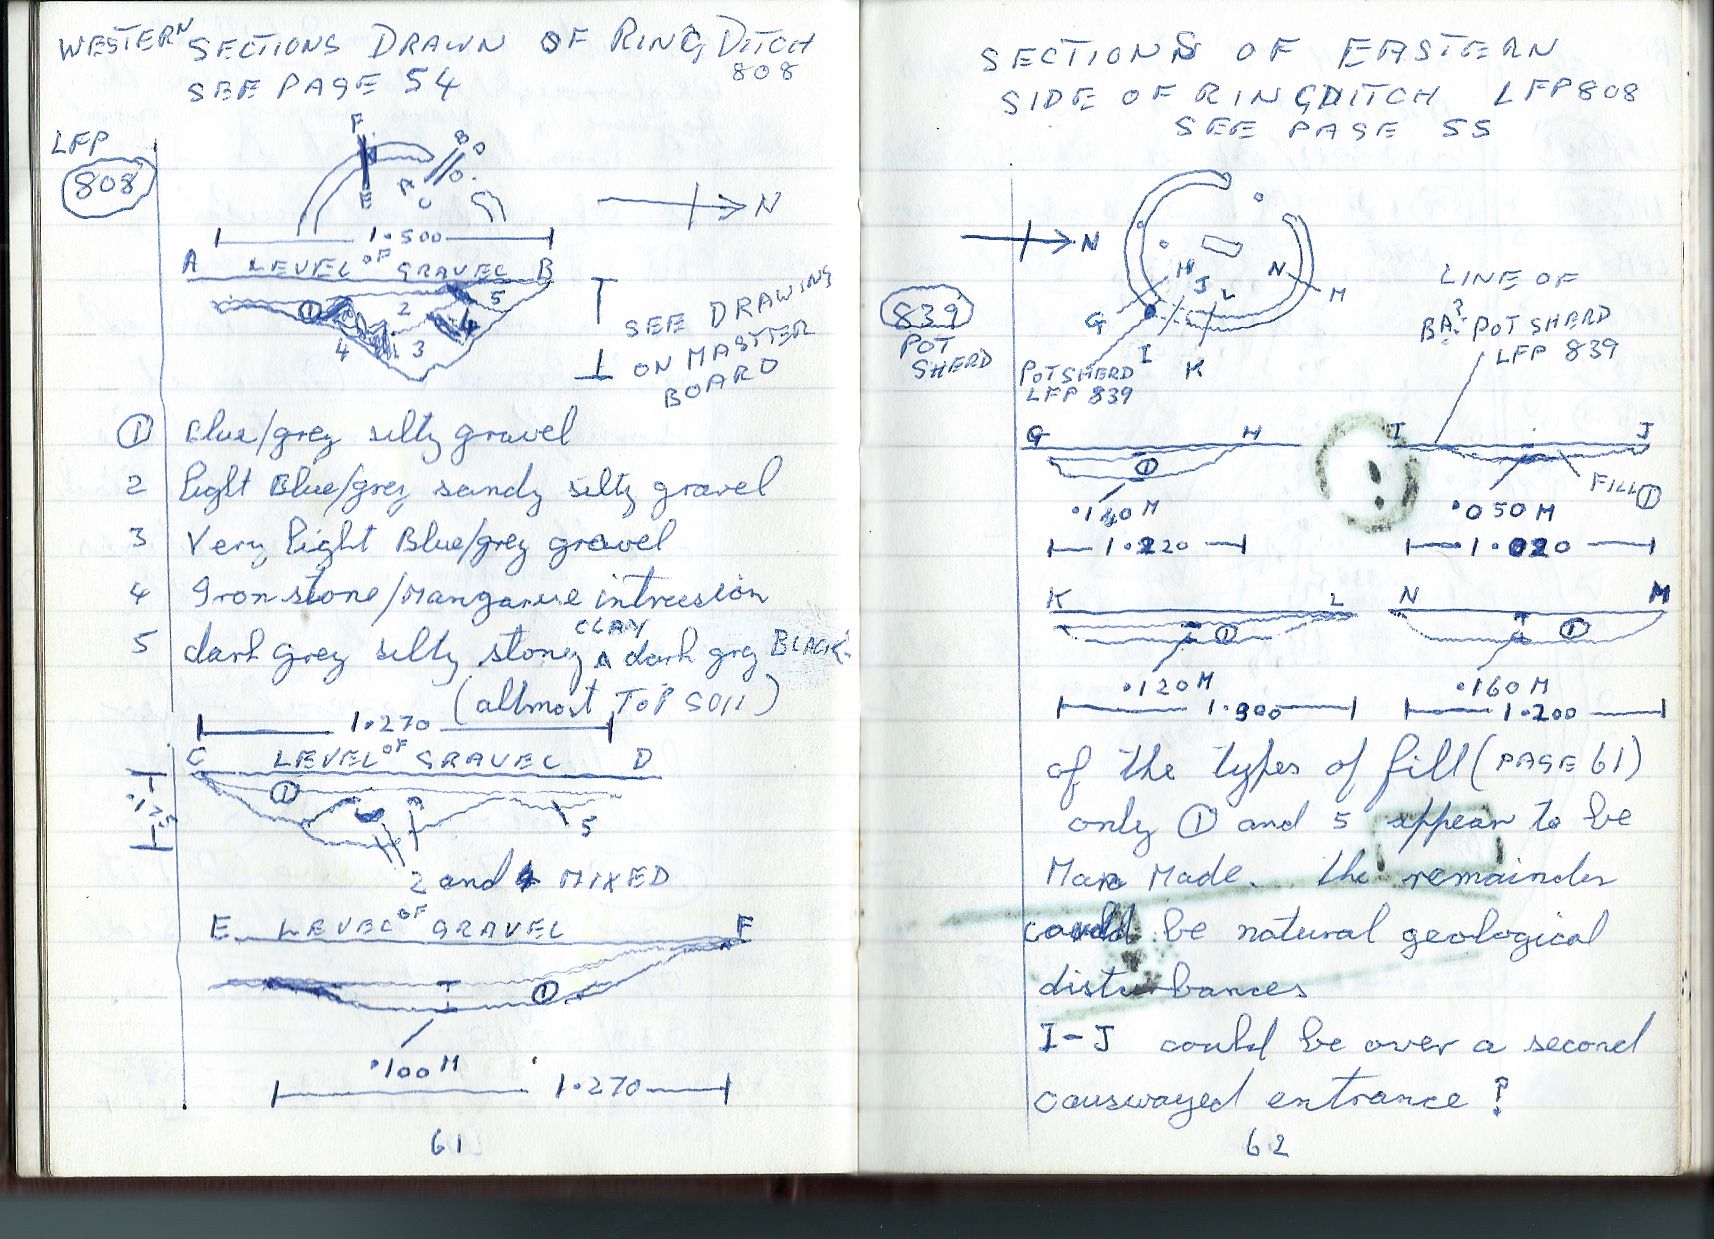 WESTERN SECTIONS DRAWN OF RING DITCH 808
SEE PAGE 54
LFP
808
F
B D
A C
E
N
1.500
A LEVEL OF GRAVEL B
1 2 5
4 3 4
SEE DRAWING
ON MASTER
BOARD
① Blue/grey silty gravel
2 light Blue/grey sandy silty gravel
3 Very light Blue/grey gravel
4 Iron stone/Manganese intrusion
5 dark grey silty stoney CLAY dark grey BLACK
(allmost TOP SOIL)
1.270
C LEVEL OF GRAVEL D
.125
①
5
2 and 4 MIXED
E LEVEL OF GRAVEL F
①
.100 M
1.270
61
SECTIONS OF EASTERN
SIDE OF RINGDITCH LFP 808
SEE PAGE 55
N
H J L N M
G I K
839
POT
SHERD
POTSHERD
LFP 839
LINE OF
BA? POTSHERD
LFP 839
G H I J
①
FILL ①
.140 M .050 M
1.220 1.020
K L N M
① ①
.120 M .160 M
1.900 1.200
of the types of fill (PAGE 61)
only ① and 5 appear to be
Man Made. the remainder
could be natural geological
disturbances
I-J could be over a second
causwayed entrance ?
62